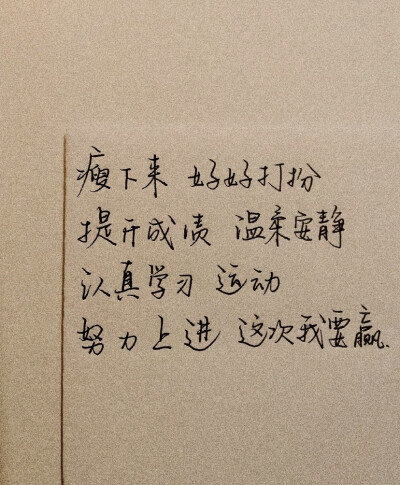 瘦下来 好好打扮
提升成绩 温柔安静
认真学习 运动
努力上进 这次我要赢.